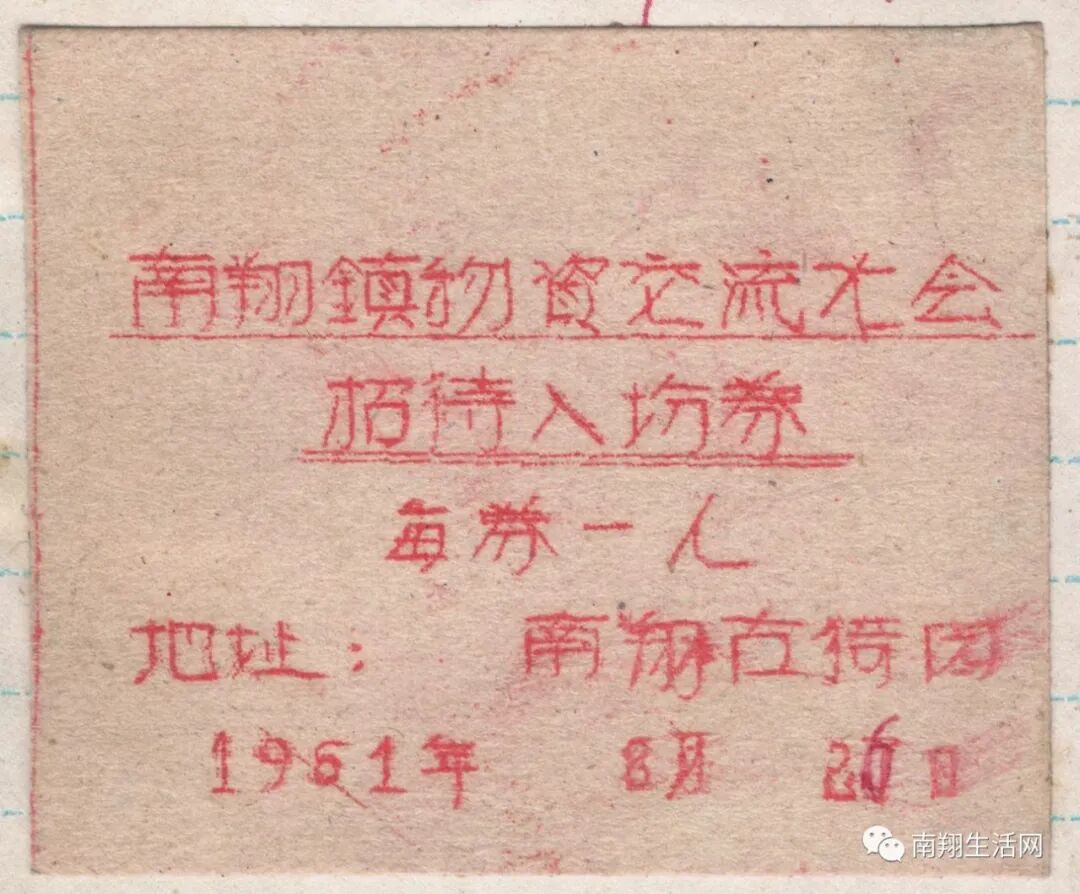 南翔鎮物資交流大会
招待入场券
每券一人
地址： 南翔古猗园
1961年 8月 26日
南翔生活网